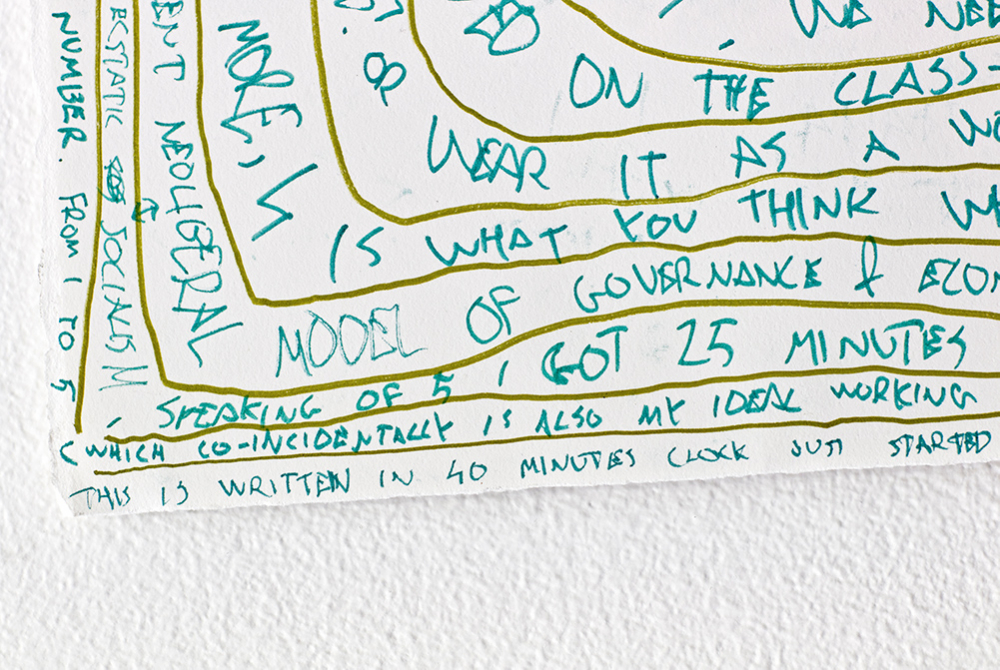 WE NEE
ON THE CLASS-
WEAR IT AS A
MORE, IS
IS WHAT YOU THINK
ENT NEOLIBERAL
MODEL OF GOVERNANCE & ECON
ECSTATIC SOCIALISM
, SPEAKING OF 5 I GOT 25 MINUTES
NUMBER. FROM 1 TO 5
(WHICH CO-INCIDENTALLY IS ALSO MY IDEAL WORKING
THIS IS WRITTEN IN 40 MINUTES CLOCK JUST STARTED